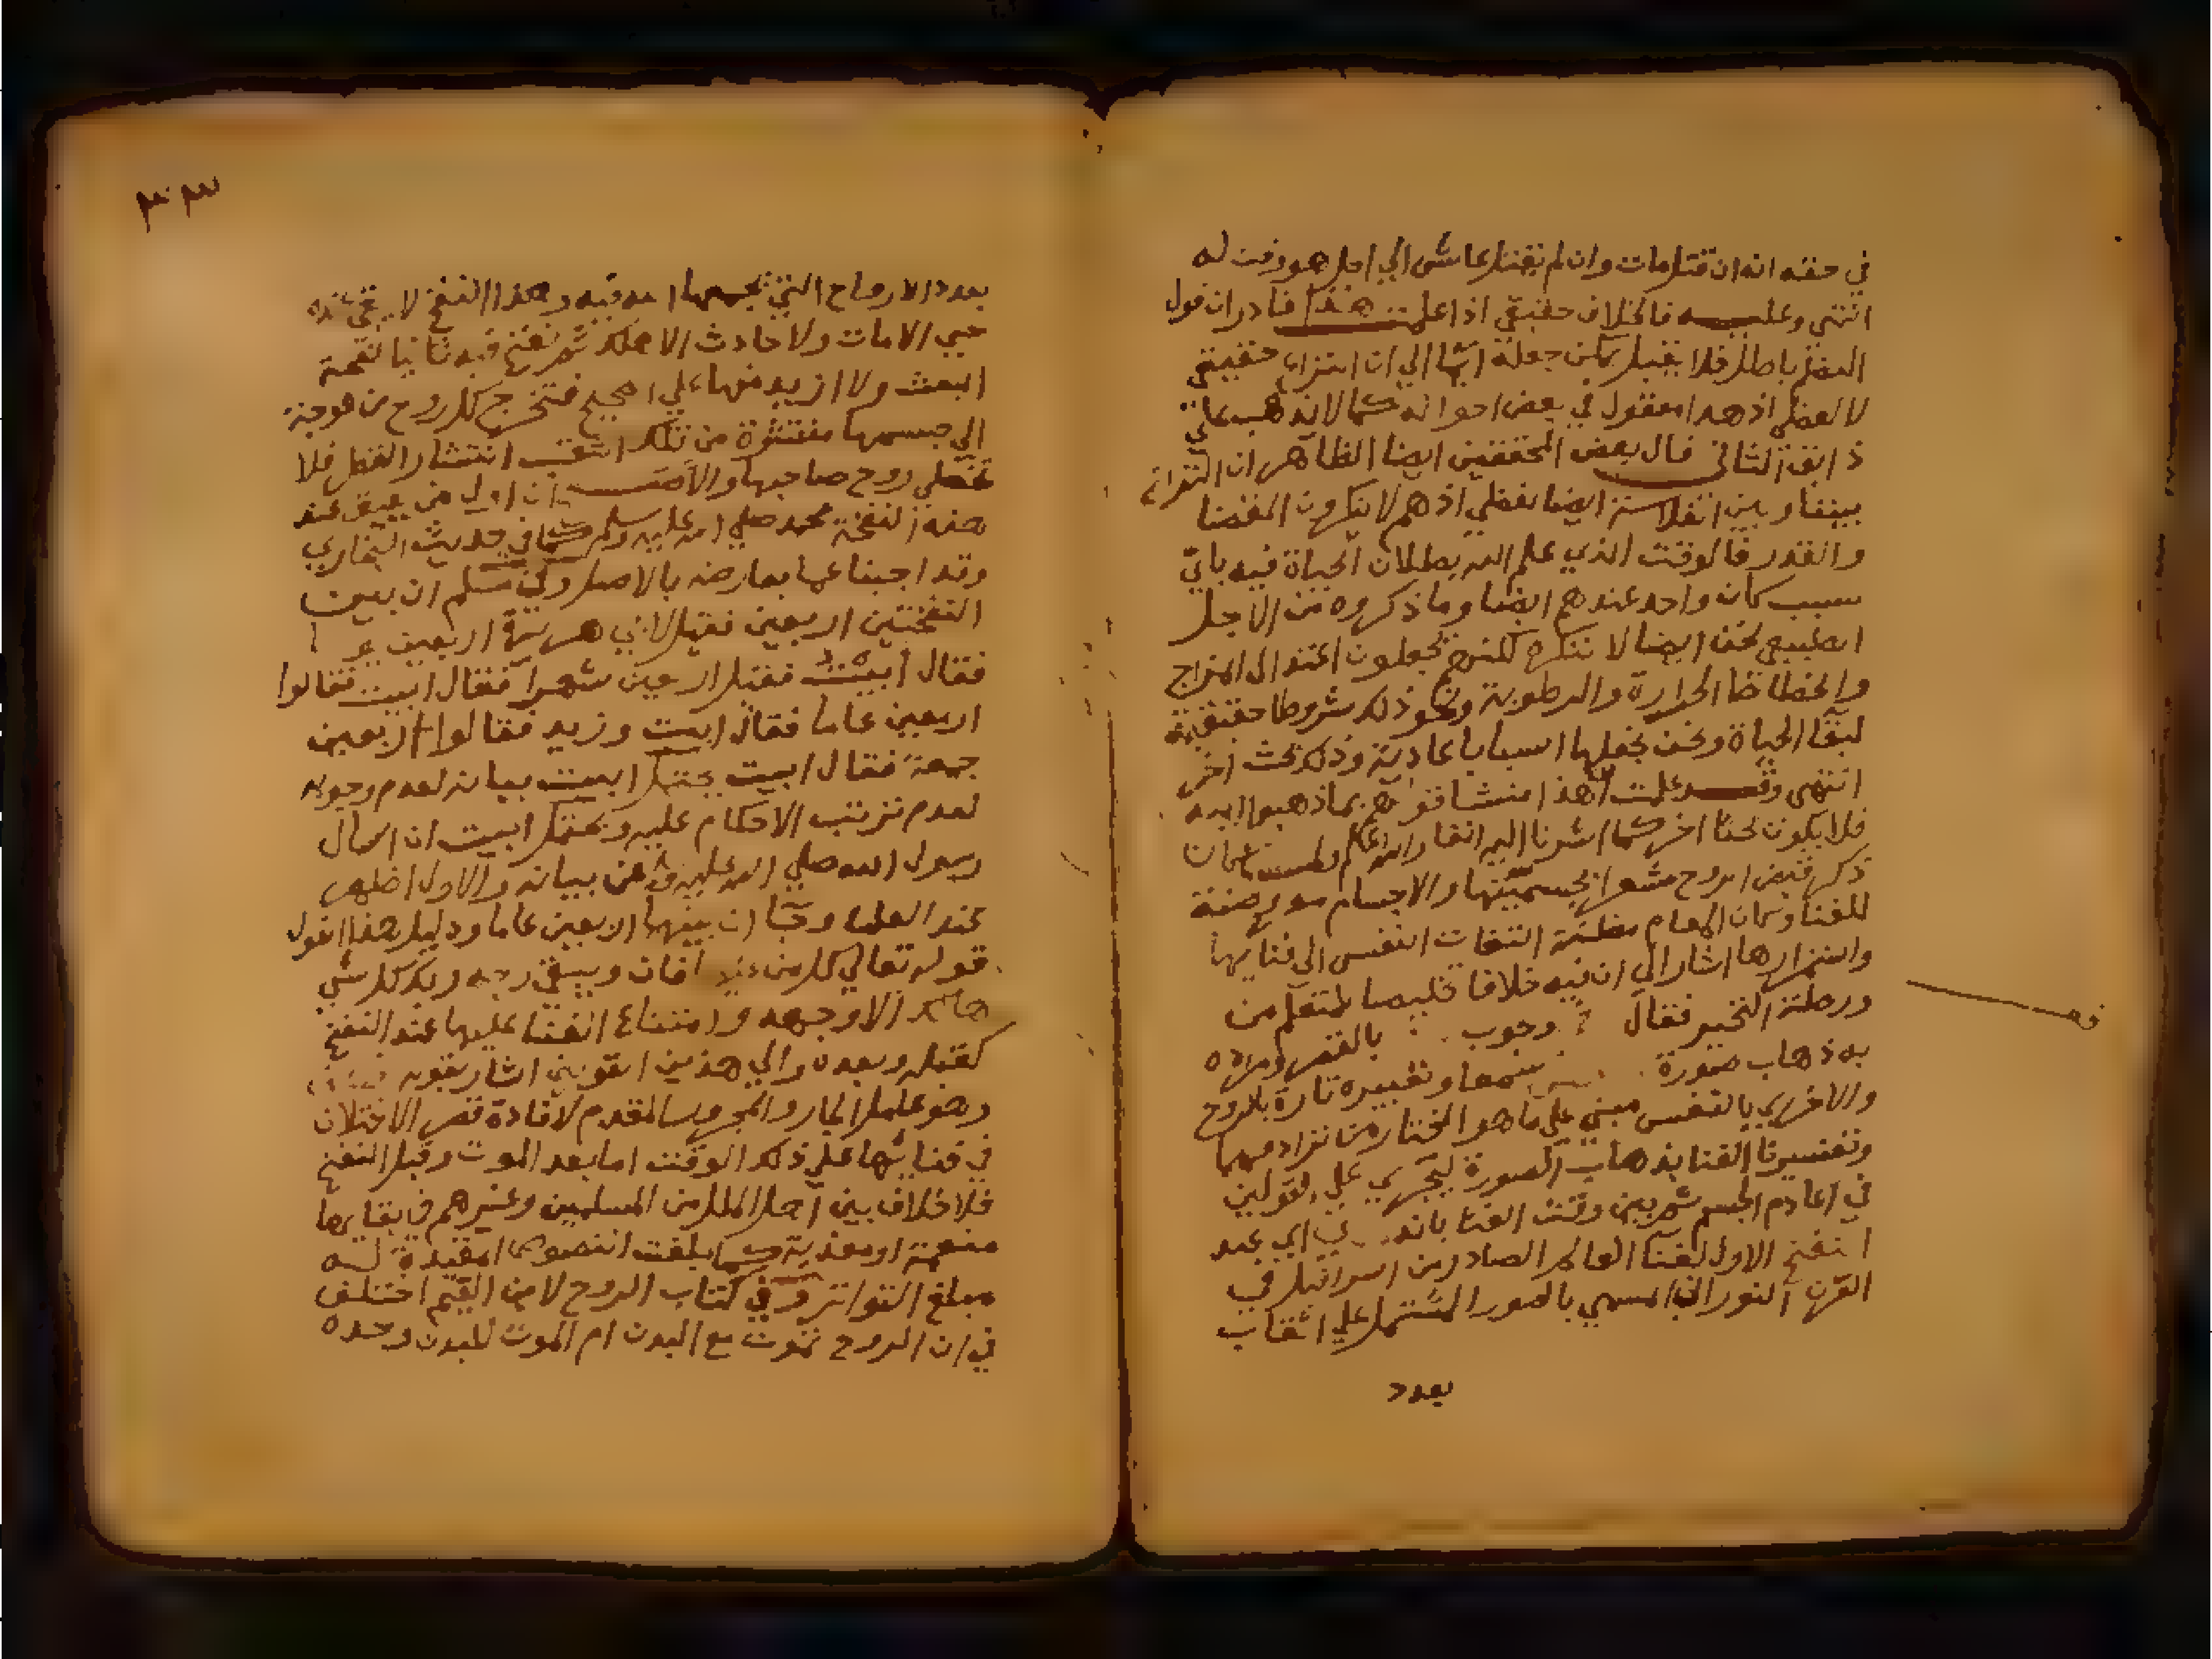 في حقه انه ان قتل مات وان لم يقتل عاش الي اجل هو وقت له
انتهى وعليه فالخلاف حقيقي اذا علمت هذا فادر ان قول
باطل فلا يقبل يمكن جعله الي ان النزاع حقيقي
لا لفظي اذ هذا معقول في بعض احواله كما لا يذهب علي
الثاني قال بعض المحققين ايضا الظاهر ان النزاع
بيننا وبين الفلاسفة ايضا لفظي اذ هم لا ينكرون القضا
والقدر فالوقت الذي علم الله بطلان الحياة فيه باي
سبب كان واحد عندهم ايضا وما ذكروه من الاجل
الطبيعي نحن ايضا لا ننكره لكنهم يجعلون اعتدال المزاج
والحرارة والرطوبة ونحو ذلك شروطا حقيقية
لبقا الحياة ونحن نجعلها اسبابا عادية وذلك بحث اخر
انتهى وقد علمت هذا بما ذهبوا اليه
فلا يكون بحثا اخر كما اشرنا اليه انفا والله اعلم ولما كان
ذكر قبض الروح مشعرا بجسميتها والاجسام معرضة
للفنا وكان المقام مظنة التفات النفس الي فنايها
واستمرارها اشار الي ان فيه خلافا تخليصا للمتعلم من
ورطة التحير فقال وجوب بالقصر ومراده
به ذهاب صورة وتعبيره تارة بالروح
والاخرى بالنفس مبني علي ما هو المختار من ترادفهما
وتفسيرنا الفنا بذهاب الصورة ليجري علي القولين
في اعادة الجسم ثم بين وقت الفنا بانه عند
النفخ الاول لفنا العالم الصادر من اسرافيل في
القرن النوراني المسمى بالصور المشتمل علي اثقاب
بعدد
٣٣
بعدد الارواح التي فيه وهذا النفخ لا يبقى عنده
حي الا مات ولا حادث الا هلك ثم نفخ فيه ثانيا نفخة
البعث ولا ازيد منها علي الصحيح فتخرج كل روح من
الي جسمها منتثرة من تلك الثقب انتشار النحل فلا
تخطي روح صاحبها ان اول من يفيق عند
هذه النفخة محمد صلي الله عليه وسلم كما في حديث البخاري
وقد اجبنا عما يعارضه بالاصل وفي مسلم ان بين
النفختين اربعين فقيل لابي هريرة اربعين
فقال ابيت فقيل اربعين شهرا فقال ابيت فقالوا
اربعين عاما فقال ابيت وزيد فقالوا اربعين
جمعة فقال ابيت يحتمل ابيت بيانه لعدم وجوبه
لعدم ترتب الاحكام عليه ويحتمل ابيت ان اسال
رسول الله صلي الله عليه وسلم عن بيانه والاول اظهر
عند العلماء وجا ان بينهما اربعين عاما ودليل هذا القول
قوله تعالي كل من عليها فان ويبقى وجه ربك كل شي
هالك الا وجهه وامتناع الفنا عليها عند النفخ
كقبله وبعده والي هذين القولين اشار بقوله
وهو عامل الجار والمجرور المقدم لافادة قصر الاختلاف
في فنايها علي ذلك الوقت اما بعد الموت وقبل النفخ
فلا خلاف بين اهل الملل من المسلمين وغيرهم في بقايها
منعمة او معذبة كما بلغت النصوص المفيدة له
مبلغ التواتر وفي كتاب الروح لابن القيم اختلف
في ان الروح تموت مع البدن ام الموت للبدن وحده